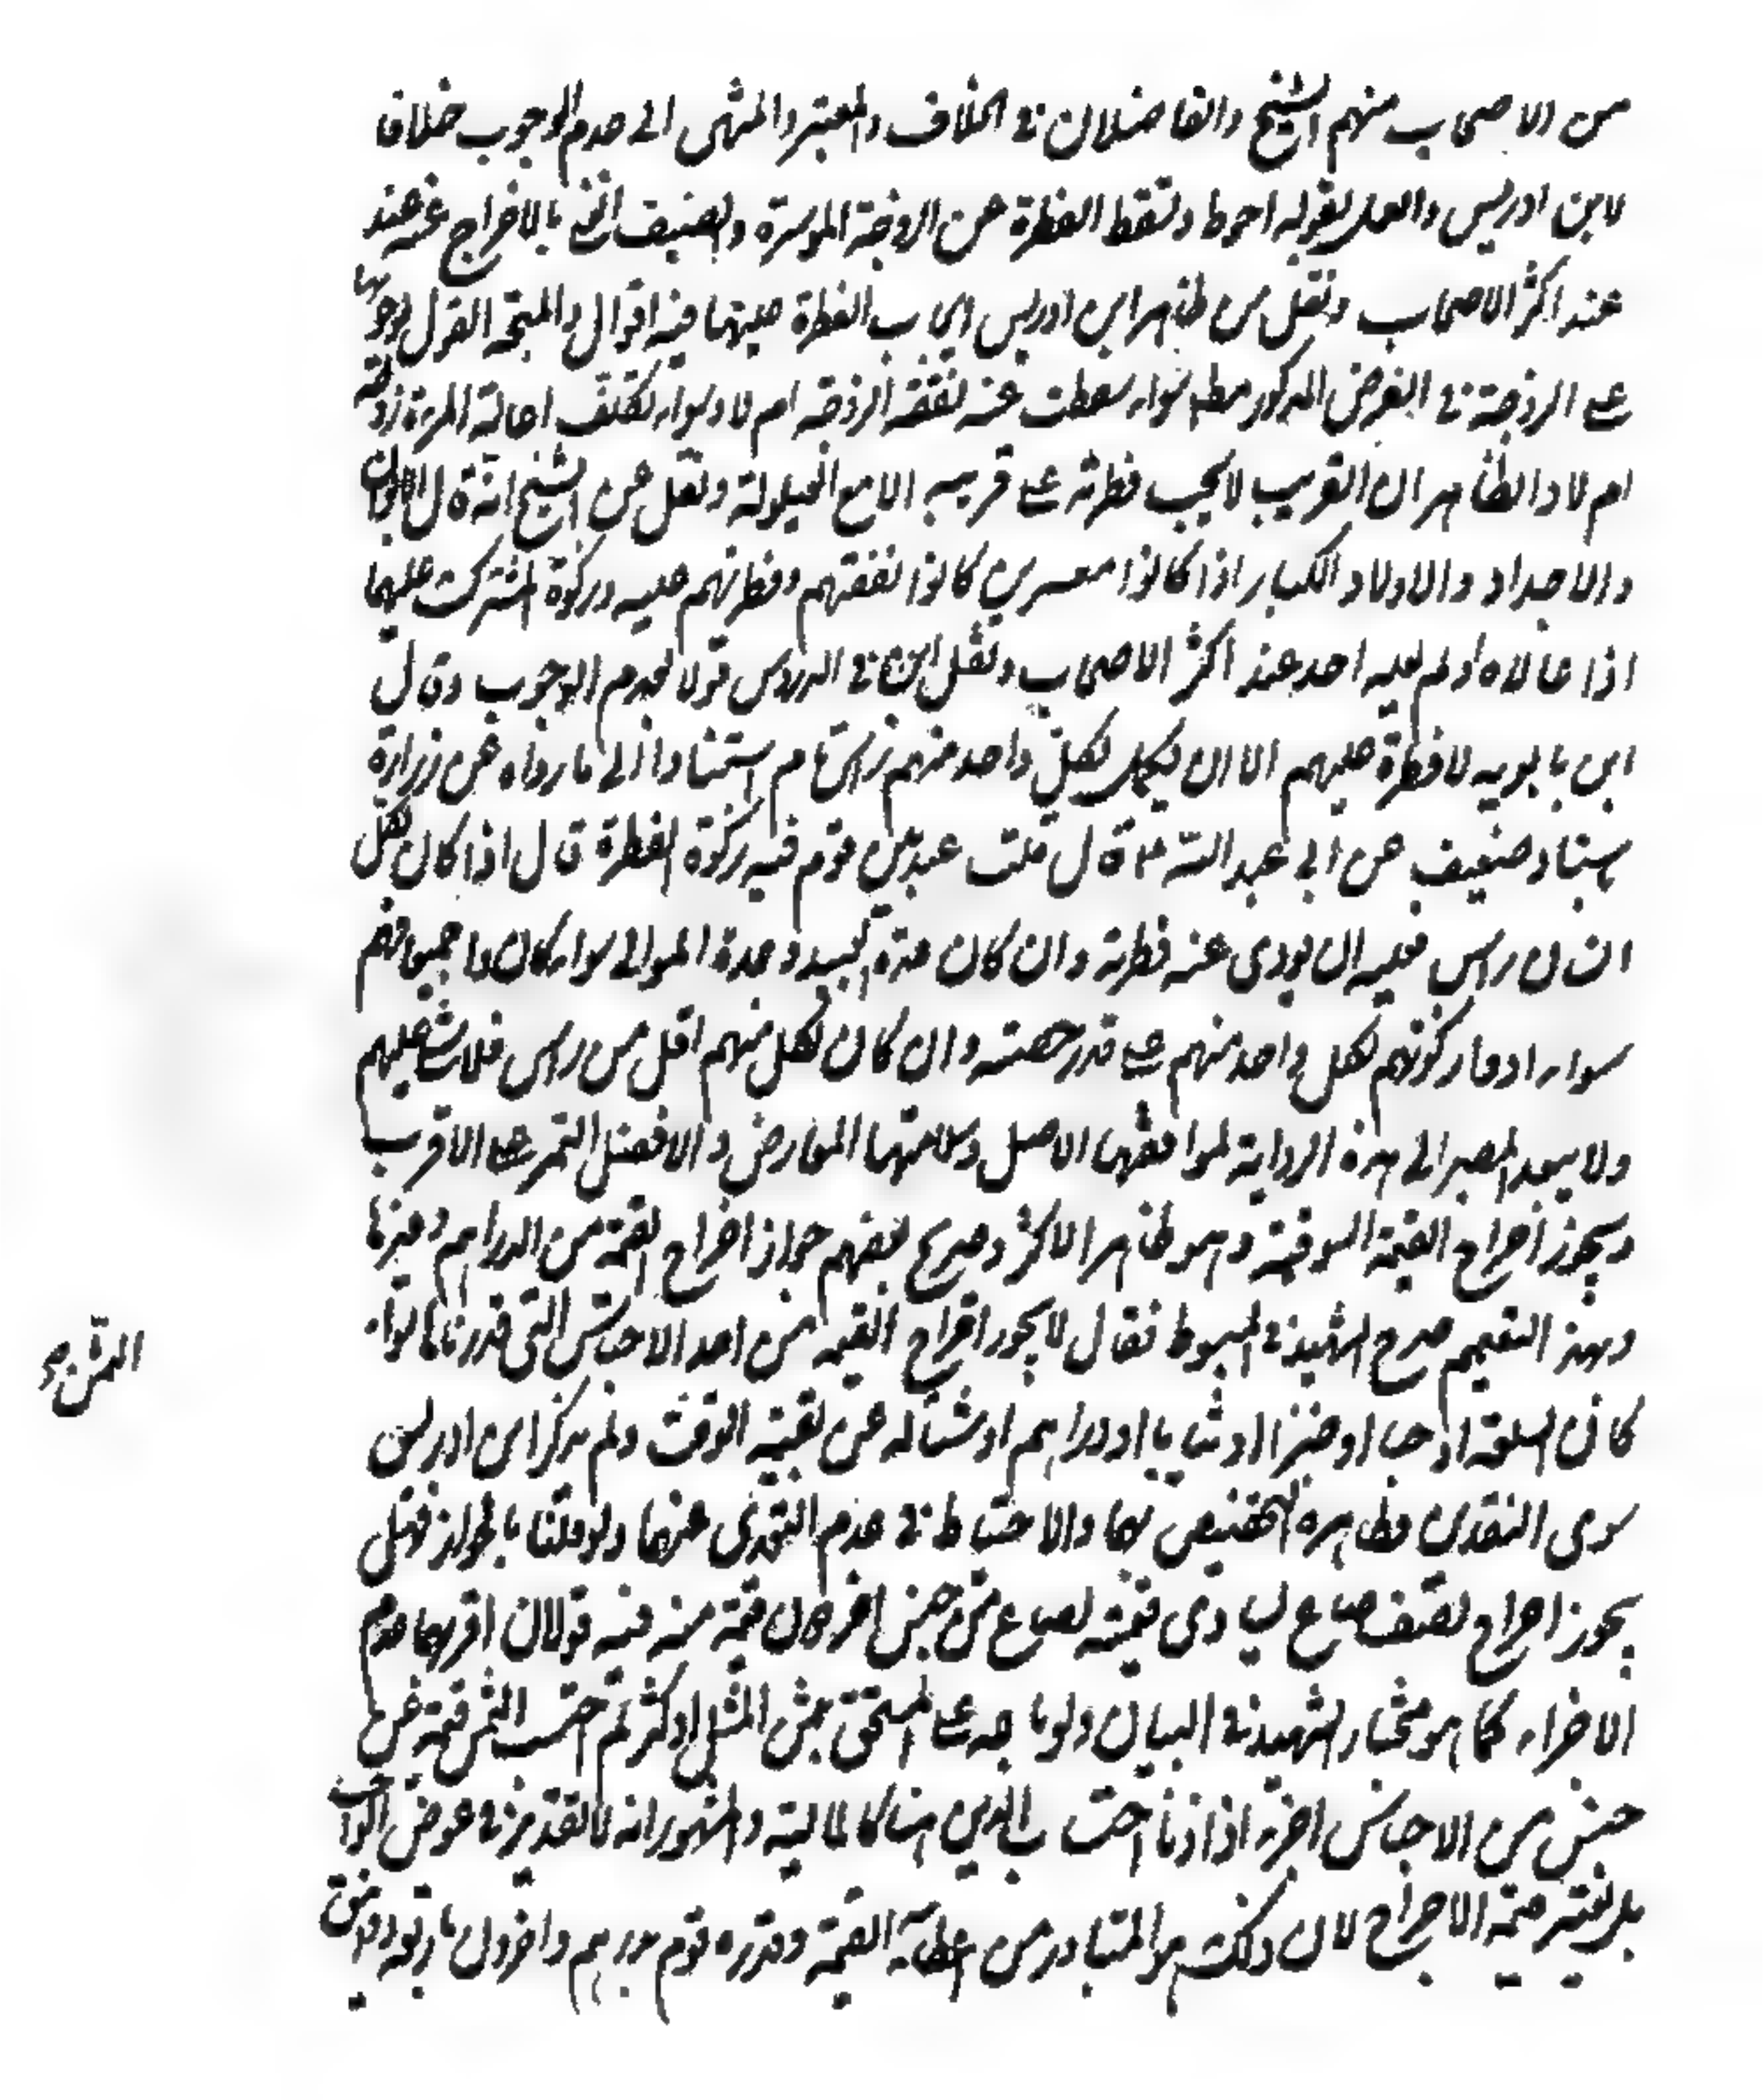 من الاصحاب منهم الشيخ والفاضلان في الخلاف والمعتبر والمنتهى الى عدم الوجوب خلافا
لابن ادريس والعمل بقوله احوط وتسقط الفطرة عن الزوجة الموسرة والضيف الغني بالاخراج عنه عند
عند اكثر الاصحاب ونقل من ظاهر ابن ادريس ايجاب الفطرة عليهما فيه اقوال والمتجه القول بوجوبها
على الزوجة في الفرض المذكور مطلقا سواء سقطت عنه نفقة الزوجة ام لا وسواء تكلف اعالة المرءة زوجته
ام لا والظاهر ان القريب لا يجب فطرته على قريبه الا مع العيلولة ونقل عن الشيخ انه قال الابوان
والاجداد والاولاد الكبار اذا كانوا معسرين كانوا نفقتهم وفطرتهم عليه وزكوة المشترك عليهما
اذا عالاه او لم يعله احد عند اكثر الاصحاب ونقل في الدروس قولا بعدم الوجوب وقال
ابن بابويه لا فطرة عليهم الا ان يكمل لكل واحد منهم راس تام استنادا الى ما رواه عن زرارة
باسناد ضعيف عن ابي عبد الله ع قال قلت عبد بين قوم فيه زكوة الفطرة قال اذا كان لكل
انسان راس فعليه ان يودي عنه فطرته وان كان عدة العبيد وعدة الموالي سواء كانوا جميعا فهم
سواء ادوا زكوتهم لكل واحد منهم على قدر حصته وان كان لكل منهم اقل من راس فلا شئ عليهم
ولا يبعد المصير الى هذه الرواية لموافقتها الاصل وسلامتها المعارض والافضل التمر على الاقرب
ويجوز اخراج القيمة السوقية وهو ظاهر الاكثر وصريح بعضهم جواز اخراج القيمة من الدراهم وغيرها
وبهذا التعميم صرح الشيخ في المبسوط فقال لا يجوز اخراج القيمة من احد الاجناس التي قدرناها سواء
كان سلعة او حبا او خبزا او ثيابا او دراهم او شيئا له ثمن بقيمة الوقت ولم يذكر ابن ادريس
سوى النقدين وظاهره التخصيص بهما والاحتياط في عدم التعدي عنهما ولو قلنا بالجواز فهل
يجوز اخراج نصف صاع يساوي قيمته لصاع من جنس اخر قيمة منه فيه قولان اقربهما عدم
الاجزاء كما هو مختار الشهيد في البيان ولو باعه على المستحق بثمن المثل او اكثر ثم احتسب الثمن قيمة عن
جنس من الاجناس اجزء اذا احتساب الدين هنا كالمالية والمشهور انه لا تقدير في عوض الواجب
بل يعتبر قيمة الاخراج لان ذلك هو المتبادر من اعطاء القيمة وقدره قوم بدرهم واخرون باربعة دوانيق